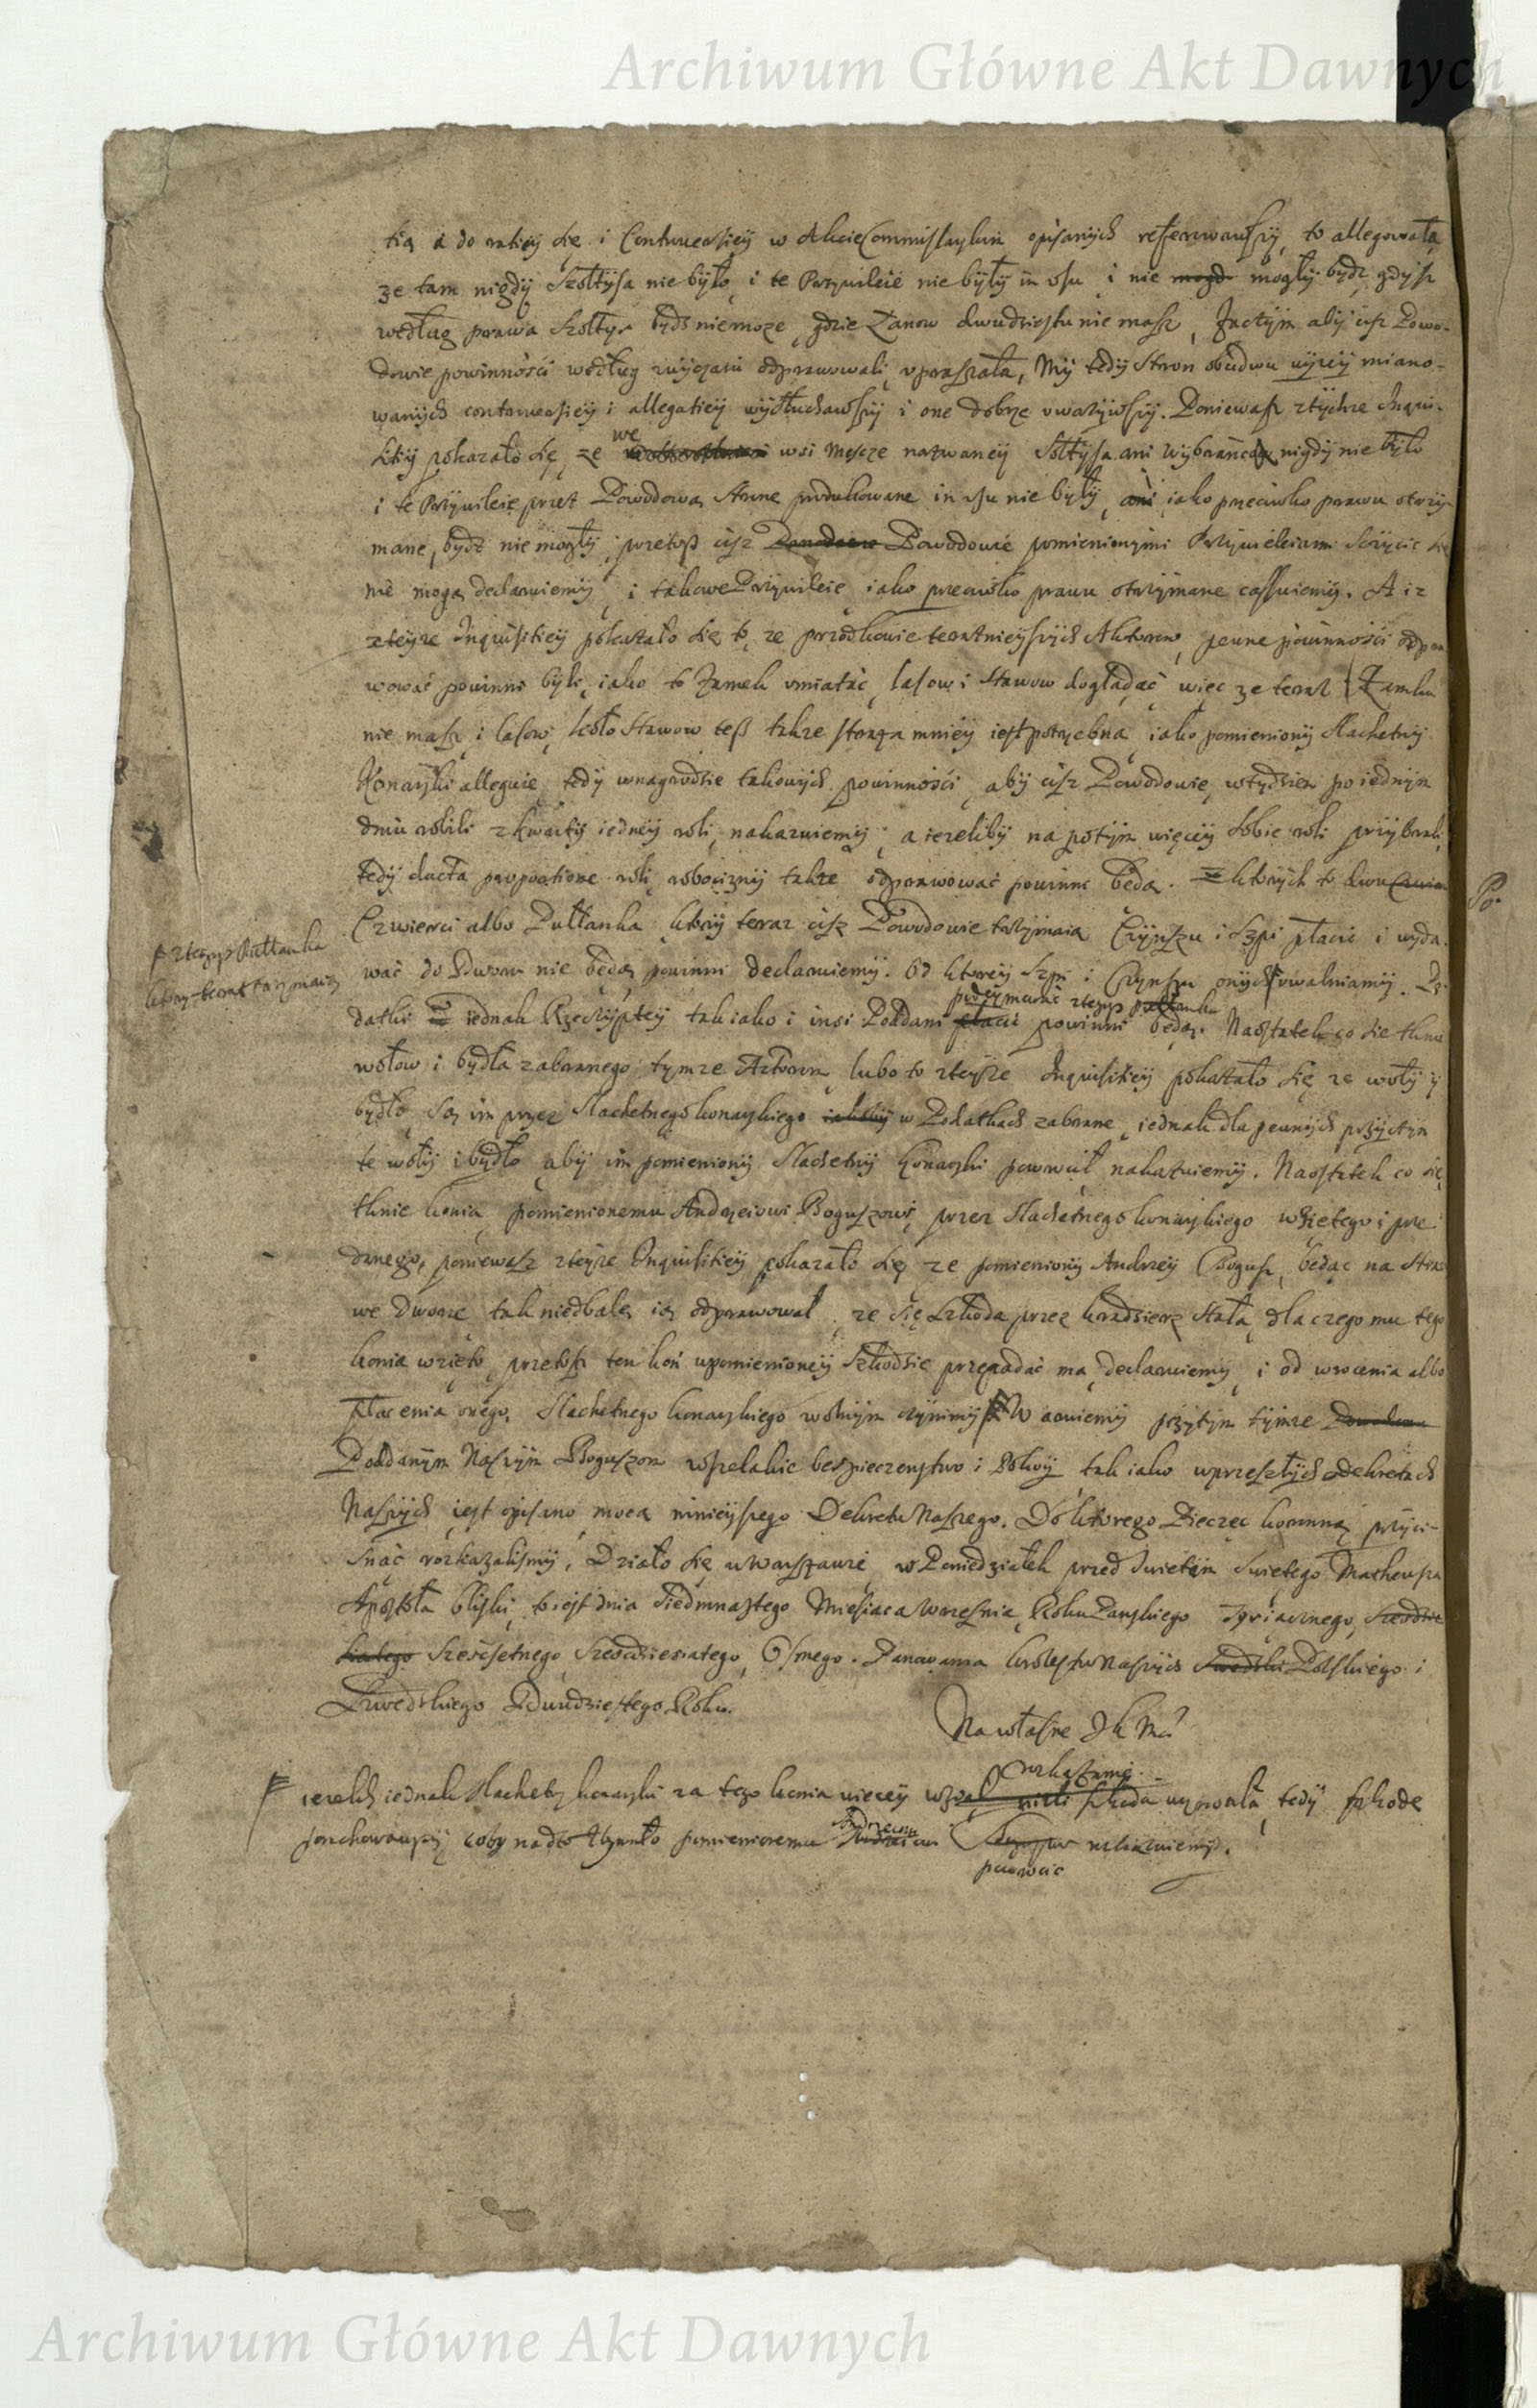 Archiwum Główne Akt Dawnych
tią a do ratiey się i Contrauersiey w Akcie Commissarskim opisanych referowawszy, to allegowała
ze tam nigdy Szołtysa nie było, i te Przywileie nie były in vsu i nie mogły bydz, gdysz
według prawa Szołtys bydz niemoze, gdzie Łanow dwudziestu nie masz, Zaczym aby cisz Powo-
dowie powinnosci według zwyczaiu odprawowali, vpraszała, My tedy Stron obudwu wyzey miano-
wanych contrauersiey i allegatiey wysłuchawszy i one dobrze vwazywszy. Poniewasz z tychze Inqui-
sitiy pokazało się, ze we wsi nazwaney Sołtysa ani Wybranca nigdy nie było
i te Przywileie przez Powodową Strone produkowane in vsu nie były, ani iako przeciwko prawu otrzy-
mane, bydz nie mogły, przetosz cisz Powodowie pomienionymi Przywileiami Szczycic się
nie mogą declaruiemy, i takowe Przywileie iako przeciwko prawu otrzymane cassuiemy. A iz
z teyze Inquisitiey pokazało się to, ze przodkowie teraznieyszych Aktorow, pewne powinnosci odpra
wować powinni byli, iako to Zamek vmiatać, lasow i Stawow dogłądać, więc ze teraz Zamku
nie masz i lasow, koło Stawow tesz takze straza mniey iest potrzebna, iako pomieniony Slachetny
Konarski alleguie, tedy wnagrodzie takowych powinnosci, aby cisz Powodowie, wtydzien po iednym
dniu robili z kwarty iedney roli, nakazuiemy, a iezeliby na potym więcey sobie roli przybrali,
tedy ducta proportione roli robocizny takze odprawować powinni będą. Z ktorych to dwu
Czwierci albo Pułłanka, ktory teraz cisz Powodowie trzymaią Czynszu i Szpi płacic i wyda-
wać do Dworu nie będą powinni declaruiemy. Od ktorey Szpi i Czynszu onych vwalniamy. Po-
z tegosz Pułłanka
ktory teraz trzymaią
podeymować z tegosz pułłanka
datki iednak Rzeczyptey tak iako i insi Poddani płacic powinni będą. Naostatek co się tknie
wołow i bydła zabranego tymze Aktorom, lubo to z teyze Inquisitiey pokazało się ze woły y
bydło są im przez Slachetnego Konarskiego w Podatkach zabrane, iednak dla pewnych przyczyn
te woły i bydło aby im pomieniony Slachetny Konarski powrucił nakazuiemy. Naostatek co się
tknie konia, pomienionemu Andrzeiowi Boguszowi, przez Slachetnego Konarskiego wziętego i prze
danego, poniewasz z teyze Inquisitiey pokazało się ze pomieniony Andrzey Bogusz, będąc na Straz
we Dworze tak niedbale ią odprawował, ze się szkoda przez kradziesz stała, dla czego mu tego
konia wzięto, przetosz ten koń wpomienioney Szkodzie przepadać ma, declaruiemy, i od wrocenia albo
płacenia onego, Slachetnego Konarskiego wolnym czynimy. Waruiemy przytym tymze
Poddanym Naszym Boguszom wszelakie bespieczenstwo i Pokoy, tak iako wprzeszłych Dekretach
Naszych iest opisano mocą ninieyszego Dekretu Naszego. Do ktorego Pieczęc koronną przyci-
snąć rozkazalismy. Działo się w Warszawie w Poniedziałek przed Swietym Swiętego Matheusza
Apostoła bliski, to iest dnia Siedmnastego Miesiąca Wrzesnia, Roku Panskiego Tysiącznego,
Szescsetnego, Szescdziesiatego, Osmego. Panowania krolestw Naszych Polskiego i
Szwedzkiego Dwudziestego Roku.
Na własne JKMci
rozkazanie
iezeli iednak Slachetny Konarski za tego konia wiecey wział nizli szkoda wynosiła, tedy szkode
porachowawszy coby nadto zbywało pomienionemu Andrzeiowi nakazuiemy.
powrocic
Po-
Archiwum Główne Akt Dawnych